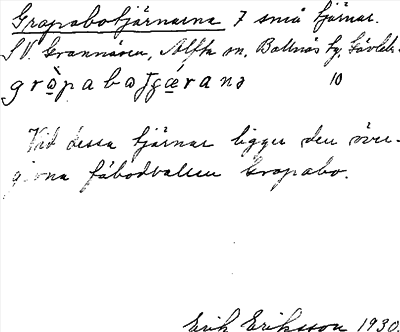 Grapabotjärnarna 7 små tjärnar.
SV. Grannäsen, Alfta sn. Bollnäs tg. Gävleb.
gròpabotjçæ̀ranə 10
Vid dessa tjärnar ligger den över-
givna fäbodvallen Grapabo.
Erik Eriksson 1930.